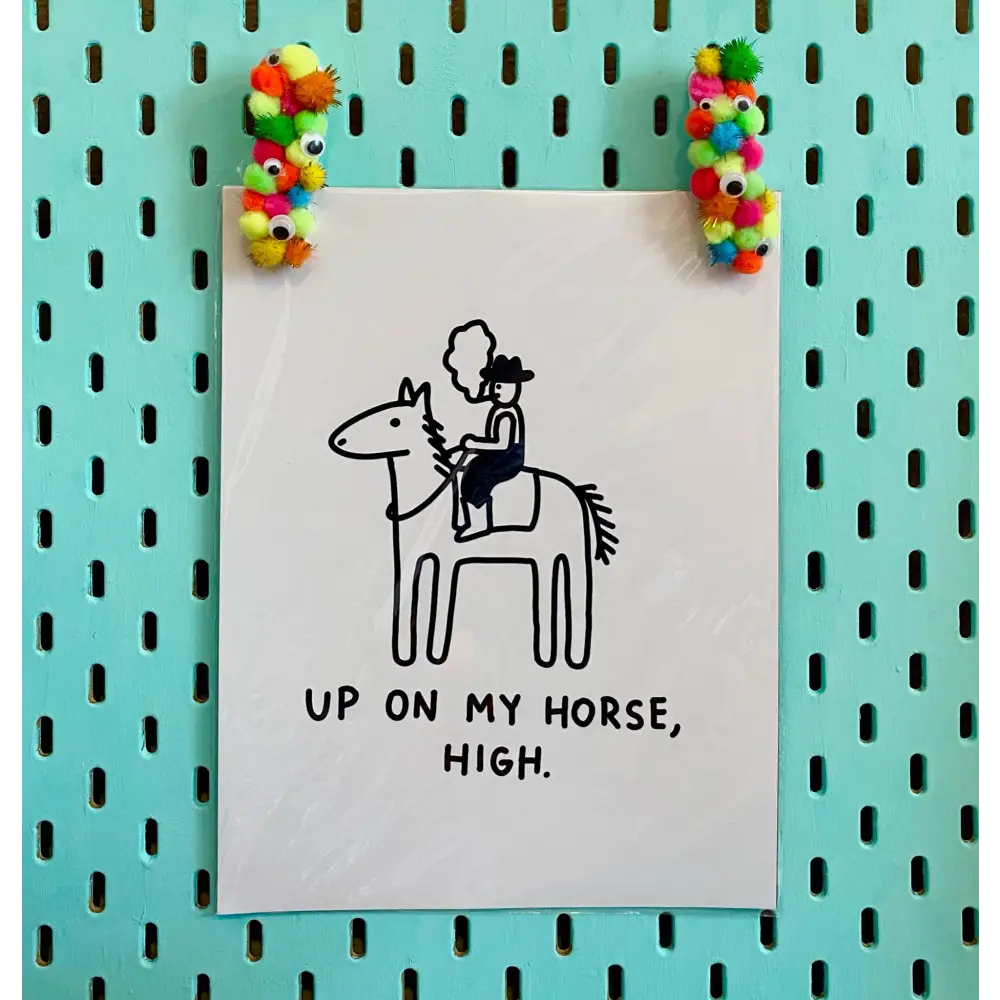 UP ON MY HORSE,
HIGH.